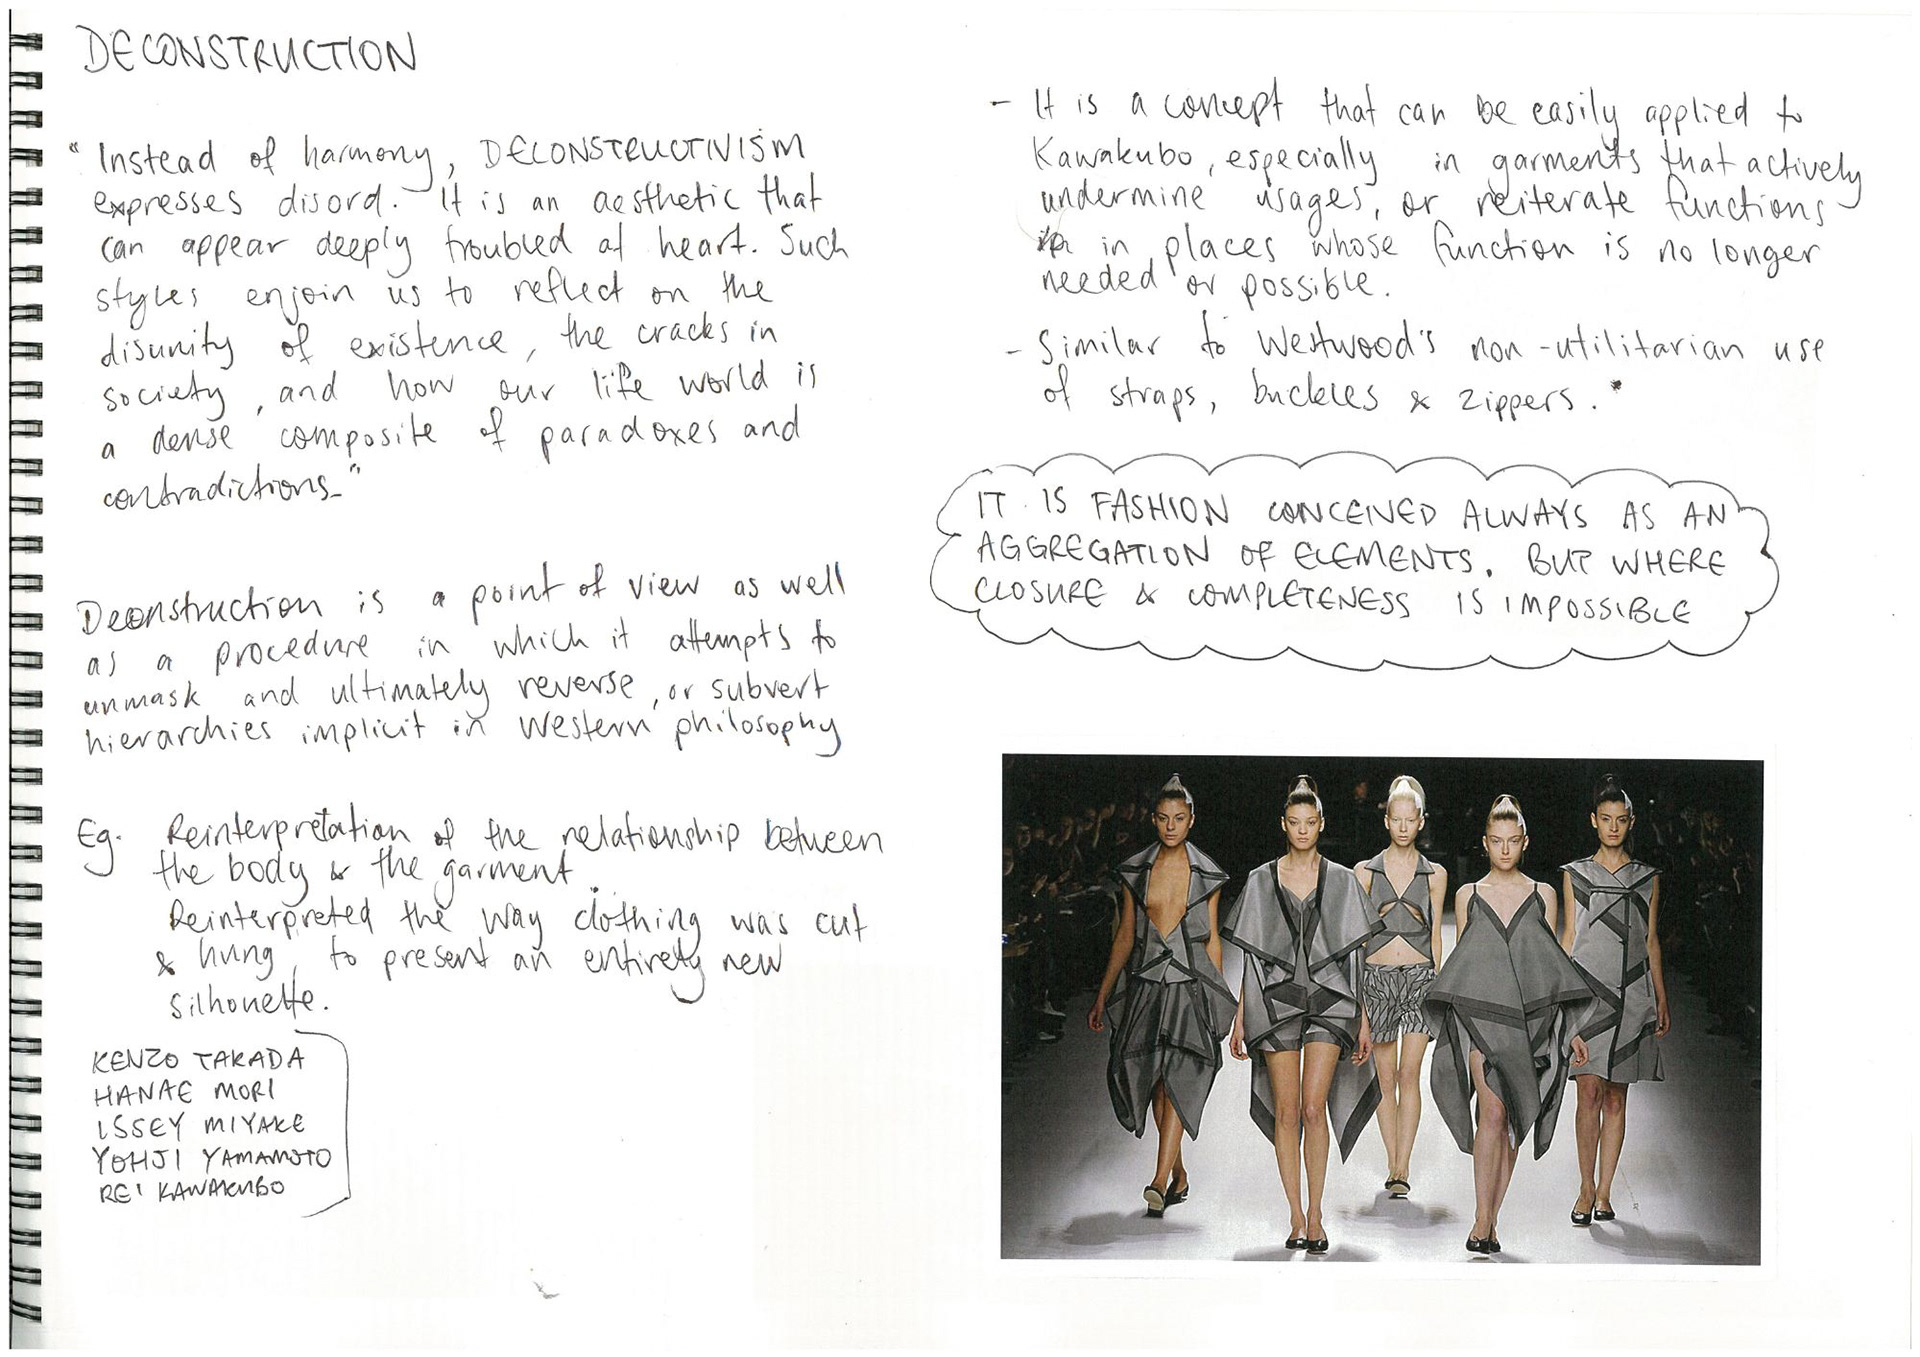 DECONSTRUCTION
"Instead of harmony, DECONSTRUCTIVISM
expresses disord. It is an aesthetic that
can appear deeply troubled at heart. Such
styles enjoin us to reflect on the
disunity of existence, the cracks in
society, and how our life world is
a dense composite of paradoxes and
contradictions."
Deconstruction is a point of view as well
as a procedure in which it attempts to
unmask and ultimately reverse, or subvert
hierarchies implicit in Western philosophy
Eg. Reinterpretation of the relationship between
the body & the garment.
Reinterpreted the way clothing was cut
& hung, to present an entirely new
silhouette.
KENZO TAKADA
HANAE MORI
ISSEY MIYAKE
YOHJI YAMAMOTO
REI KAWAKUBO
- It is a concept that can be easily applied to
Kawakubo, especially in garments that actively
undermine usages, or reiterate functions
in places whose function is no longer
needed or possible.
- Similar to Westwood's non-utilitarian use
of straps, buckles & zippers.*
IT IS FASHION CONCEIVED ALWAYS AS AN
AGGREGATION OF ELEMENTS, BUT WHERE
CLOSURE & COMPLETENESS IS IMPOSSIBLE